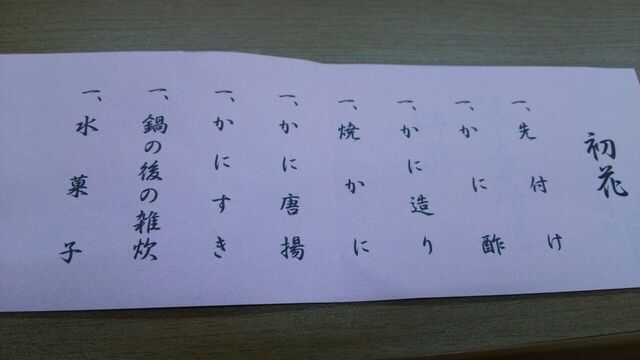 初花
一、先付け
一、かに酢
一、かに造り
一、焼かに
一、かに唐揚
一、かにすき
一、鍋の後の雑炊
一、水菓子